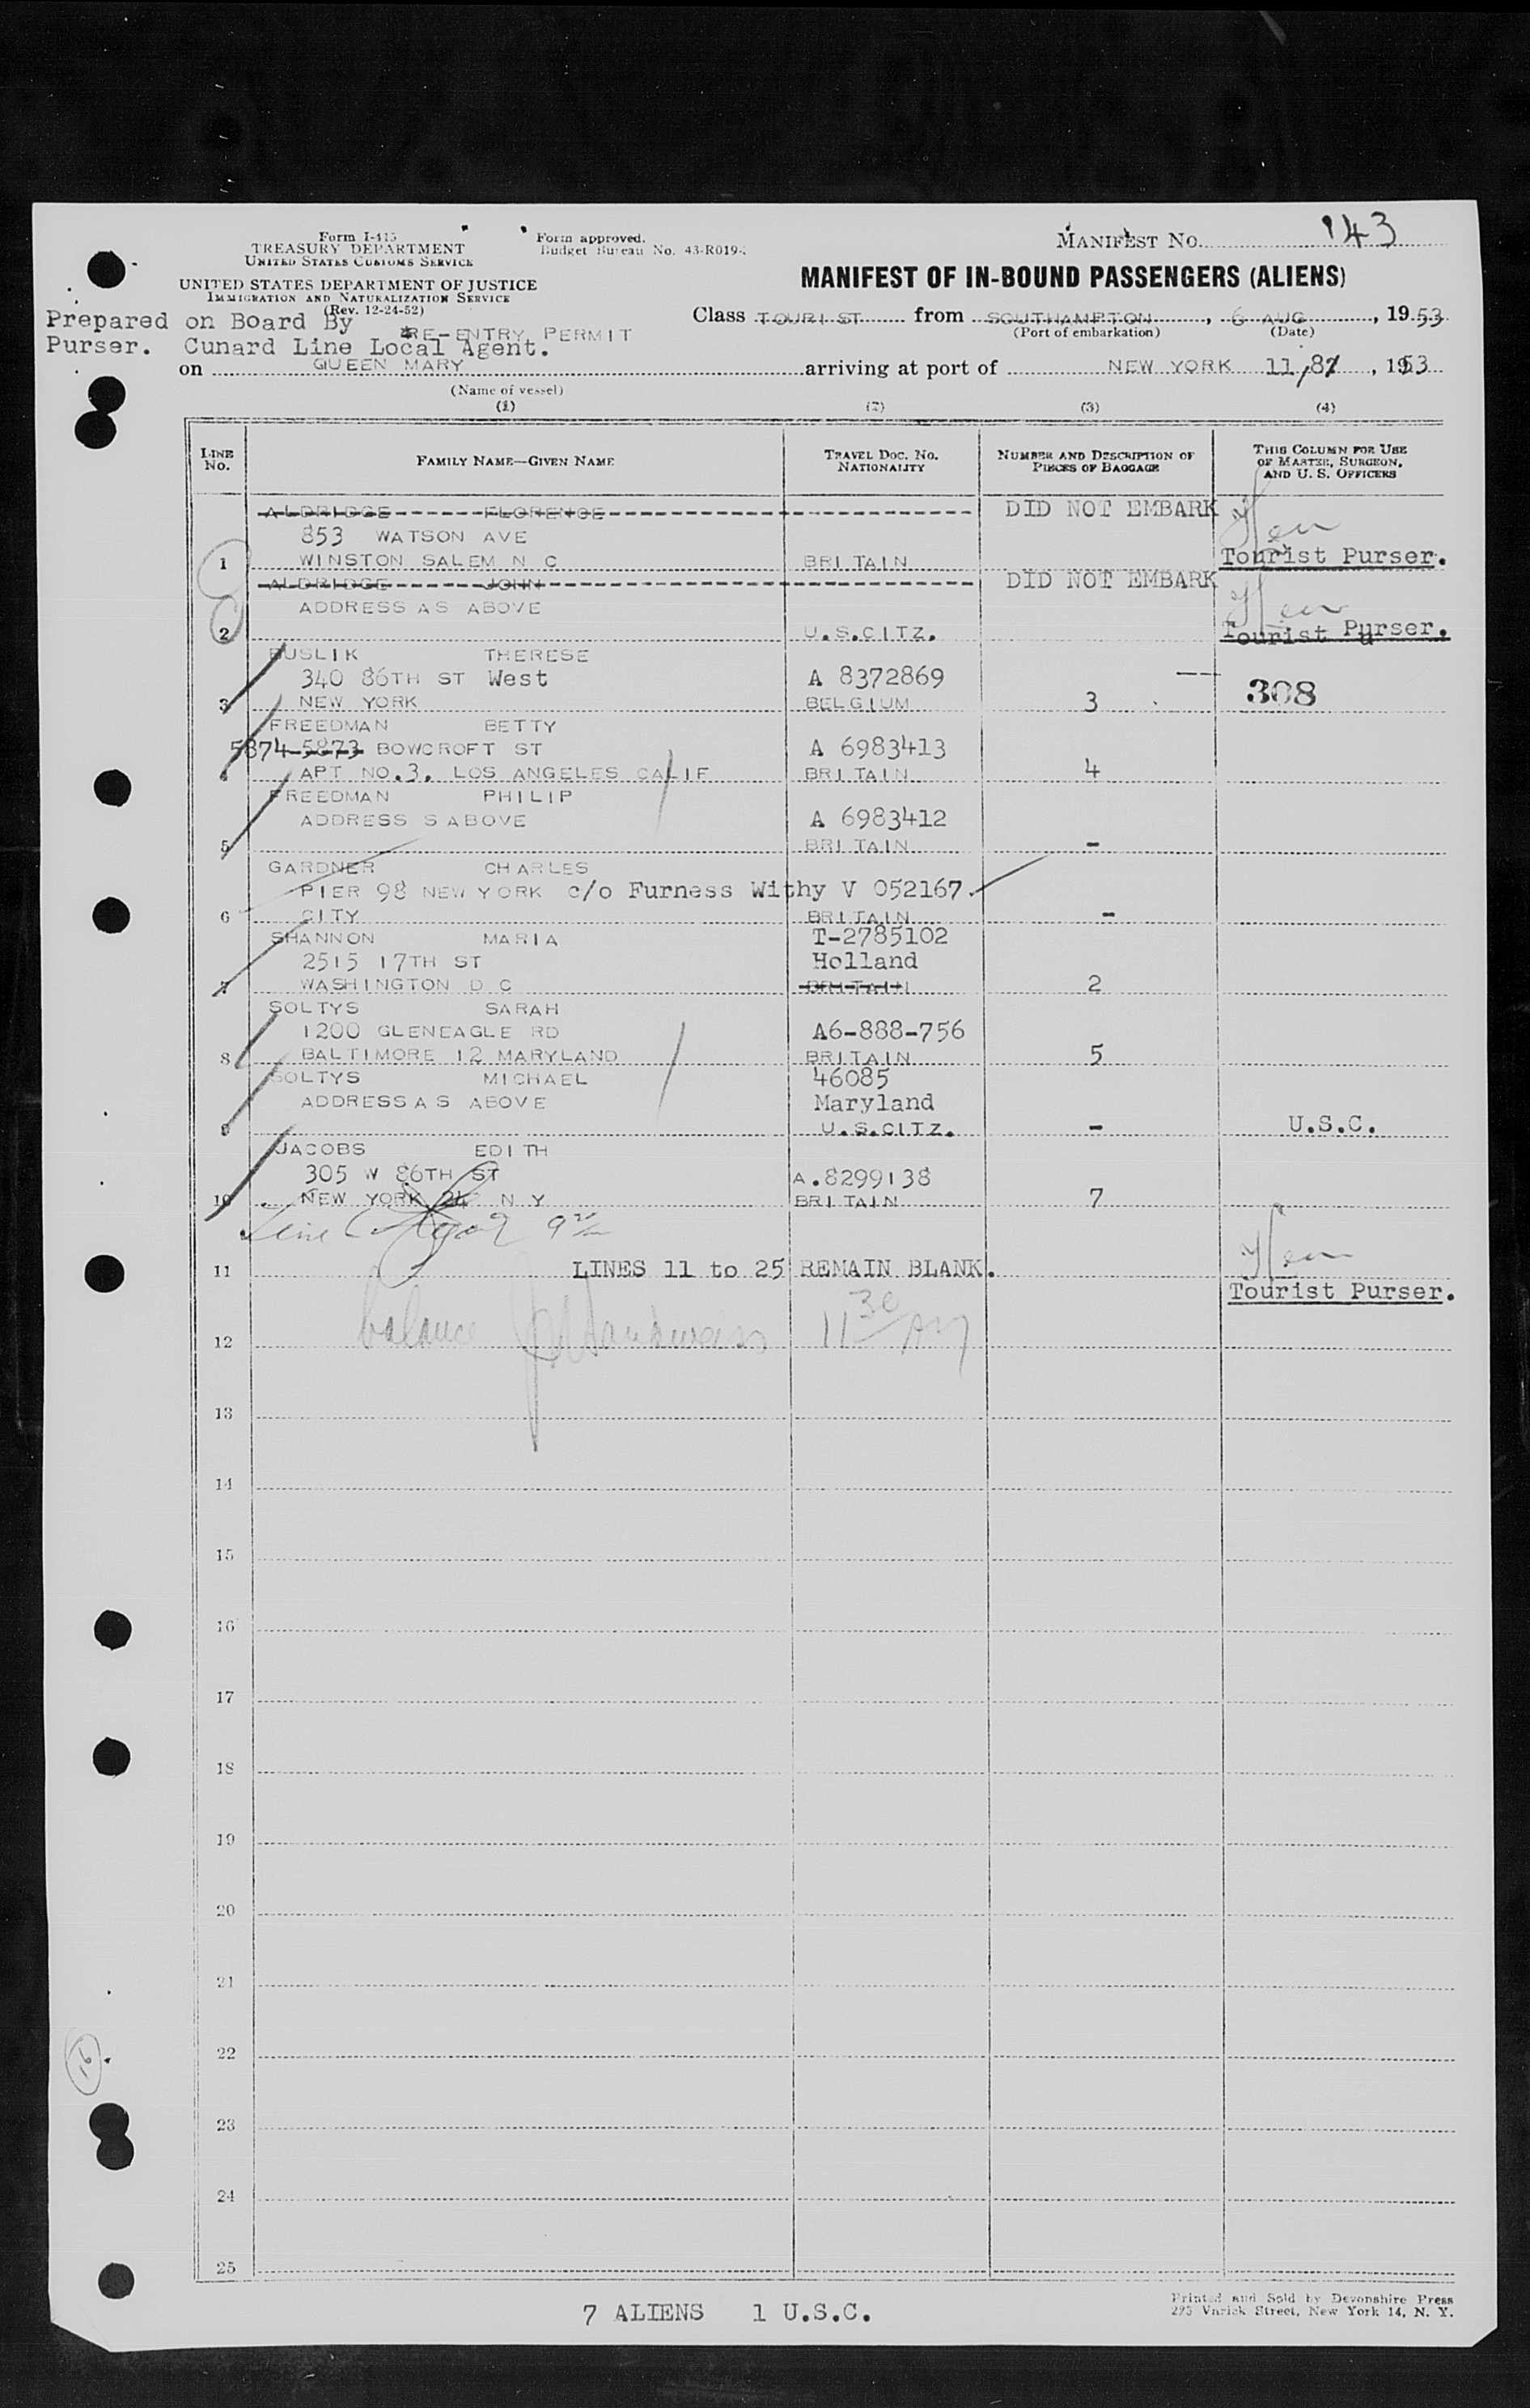 Form I-415
TREASURY DEPARTMENT
UNITED STATES CUSTOMS SERVICE
Form approved.
Budget Bureau No. 43-R019-
MANIFEST NO. 143
UNITED STATES DEPARTMENT OF JUSTICE
IMMIGRATION AND NATURALIZATION SERVICE
(Rev. 12-24-52)
MANIFEST OF IN-BOUND PASSENGERS (ALIENS)
Prepared on Board By
RE-ENTRY PERMIT
Class TOURIST from SOUTHAMPTON, 6 AUG, 1953
(Port of embarkation) (Date)
Purser. Cunard Line Local Agent.
on QUEEN MARY arriving at port of NEW YORK 11/8, 1953
(Name of vessel)
(1) (2) (3) (4)
LINE NO. FAMILY NAME—GIVEN NAME TRAVEL DOC. NO. NATIONALITY NUMBER AND DESCRIPTION OF PIECES OF BAGGAGE THIS COLUMN FOR USE OF MASTER, SURGEON, AND U. S. OFFICERS
ALDRIDGE FLORENCE DID NOT EMBARK
853 WATSON AVE
1 WINSTON SALEM N C BRITAIN Tourist Purser.
ALDRIDGE JOHN DID NOT EMBARK
ADDRESS AS ABOVE
2 U.S.CITZ. Tourist Purser.
BUSLIK THERESE
340 86TH ST West A 8372869
3 NEW YORK BELGIUM 3 308
FREEDMAN BETTY
5874 5873 BOWCROFT ST A 6983413
4 APT NO.3. LOS ANGELES CALIF BRITAIN 4
FREEDMAN PHILIP
ADDRESS S ABOVE A 6983412
5 BRITAIN -
GARDNER CHARLES
PIER 98 NEW YORK c/o Furness Withy V 052167
6 CITY BRITAIN -
SHANNON MARIA T-2785102
2515 17TH ST Holland
7 WASHINGTON D C BRITAIN 2
SOLTYS SARAH
1200 GLENEAGLE RD A6-888-756
8 BALTIMORE 12 MARYLAND BRITAIN 5
SOLTYS MICHAEL 46085
ADDRESS AS ABOVE Maryland
9 U.S.CITZ. - U.S.C.
JACOBS EDITH
305 W 86TH ST A.8299138
10 NEW YORK 24 N Y BRITAIN 7
Line 6
11 LINES 11 to 25 REMAIN BLANK.
Tourist Purser.
balance 11 30 AM
12
13
14
15
16
17
18
19
20
21
22
23
24
25
16
7 ALIENS 1 U.S.C.
Printed and Sold by Devonshire Press
295 Varick Street, New York 14, N. Y.